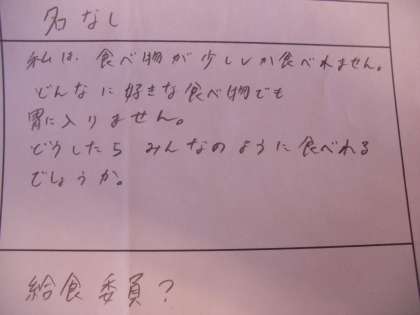 名なし
私は、食べ物が少ししか食べれません。
どんなに好きな食べ物でも
胃に入りません。
どうしたら みんなのように食べれる
でしょうか。
給食委員？